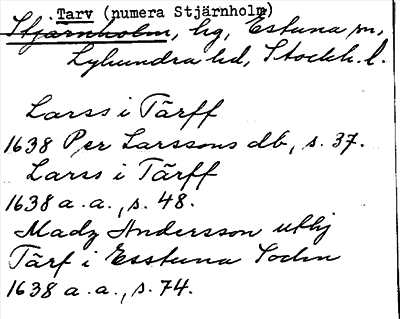 Tarv (numera Stjärnholm)
Stjärnholm, hg, Estuna sn,
Lyhundra hd, Stockh. l.
Larss i Tärff
1638 Per Larssons db, s. 37.
Larss i Tärff
1638 a. a., s. 48.
Madz Andersson utbÿ
Tärf i Esstuna Sochn
1638 a. a., s. 74.